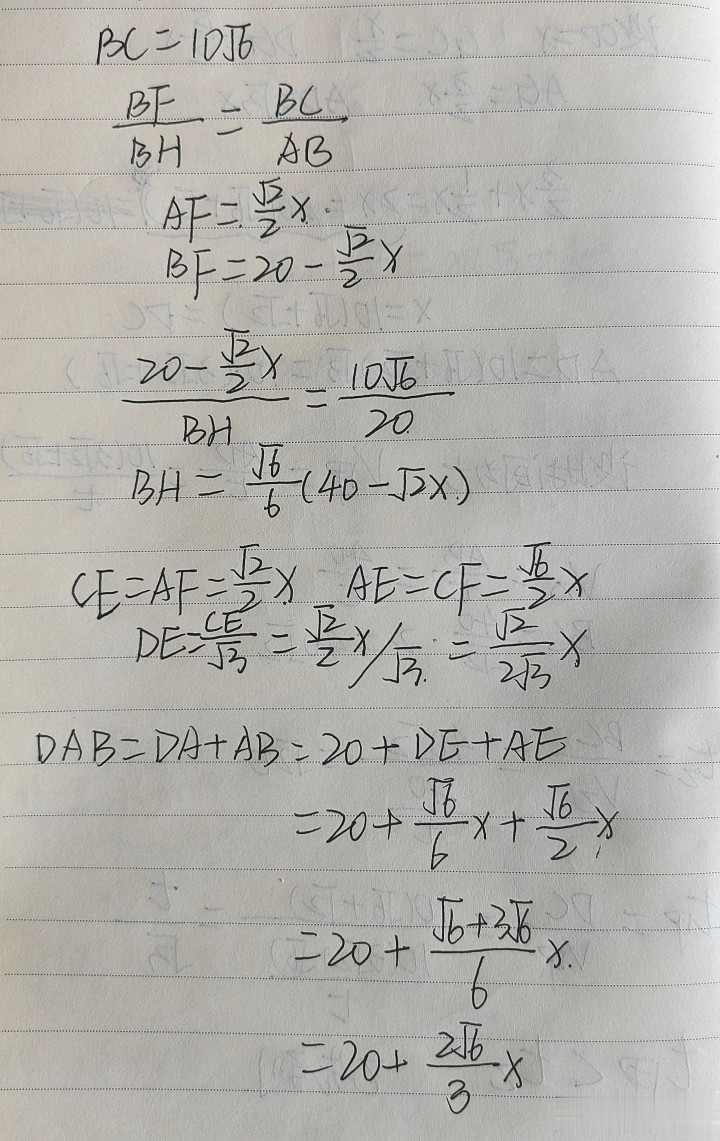 BC = 10√6
BF/BH = BC/AB
AF = √2/2 x.
BF = 20 - √2/2 x
(20 - √2/2 x)/BH = 10√6/20
BH = √6/6 (40 - √2x)
CE = AF = √2/2 x AE = CF = √6/2 x
DE = CE/√3 = √2/2 x/√3. = √2/2√3 x
DAB = DA + AB = 20 + DE + AE
= 20 + √6/6 x + √6/2 x
= 20 + (√6 + 3√6)/6 x.
= 20 + 2√6/3 x